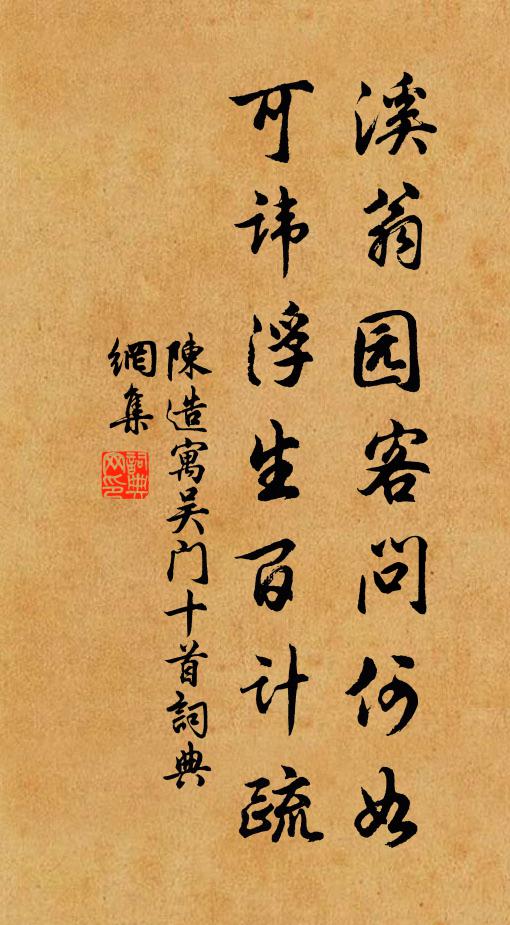 溪翁园客问何如
可讳浮生百计疏
陳造寓吴门十首詞典
網集
詞典
网印